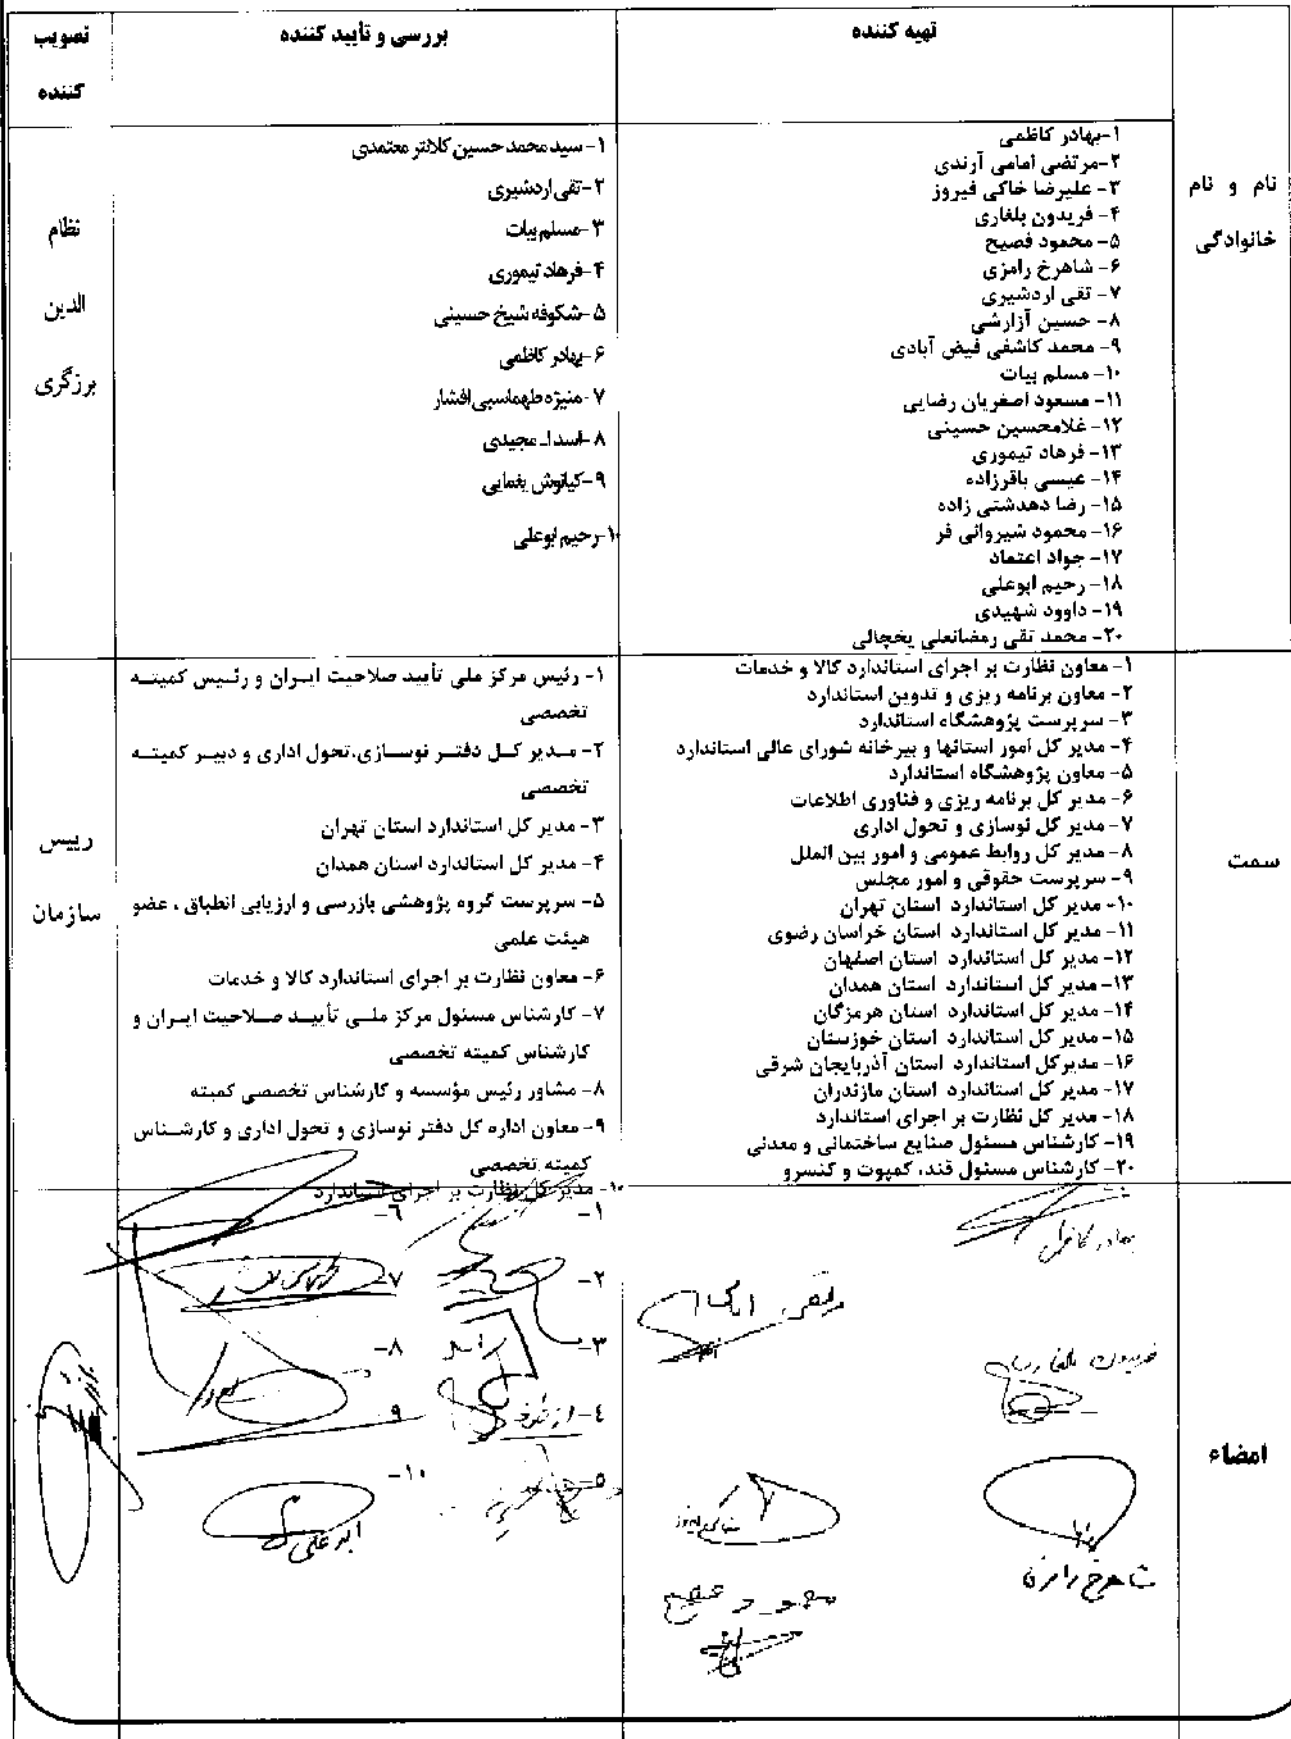 تهیه کننده
بررسی و تأیید کننده
تصویب
کننده
نام و نام
خانوادگی
۱-بهادر کاظمی
۲-مرتضی امامی آرندی
۳- علیرضا خاکی فیروز
۴- فریدون بلغاری
۵- محمود فصیح
۶- شاهرخ رامزی
۷- تقی اردشیری
۸- حسین آزارشی
۹- محمد کاشفی فیض آبادی
۱۰- مسلم بیات
۱۱- مسعود اصغریان رضایی
۱۲- غلامحسین حسینی
۱۳- فرهاد تیموری
۱۴- عیسی باقرزاده
۱۵- رضا دهدشتی زاده
۱۶- محمود شیروانی فر
۱۷- جواد اعتماد
۱۸- رحیم ابوعلی
۱۹- داوود شهیدی
۲۰- محمد تقی رمضانعلی یخچالی
۱- سید محمد حسین کلانتر معتمدی
۲-تقی اردشیری
۳-مسلم بیات
۴-فرهاد تیموری
۵-شکوفه شیخ حسینی
۶-بهادر کاظمی
۷-منیژه طهماسبی افشار
۸-اسدا... مجیدی
۹-کیانوش یغمایی
۱۰-رحیم ابوعلی
نظام
الدین
برزگری
سمت
۱- معاون نظارت بر اجرای استاندارد کالا و خدمات
۲- معاون برنامه ریزی و تدوین استاندارد
۳- سرپرست پژوهشگاه استاندارد
۴- مدیر کل امور استانها و بیرخانه شورای عالی استاندارد
۵- معاون پژوهشگاه استاندارد
۶- مدیر کل برنامه ریزی و فناوری اطلاعات
۷- مدیر کل نوسازی و تحول اداری
۸- مدیر کل روابط عمومی و امور بین الملل
۹- سرپرست حقوقی و امور مجلس
۱۰- مدیر کل استاندارد استان تهران
۱۱- مدیر کل استاندارد استان خراسان رضوی
۱۲- مدیر کل استاندارد استان اصفهان
۱۳- مدیر کل استاندارد استان همدان
۱۴- مدیر کل استاندارد استان هرمزگان
۱۵- مدیر کل استاندارد استان خوزستان
۱۶- مدیرکل استاندارد استان آذربایجان شرقی
۱۷- مدیر کل استاندارد استان مازندران
۱۸- مدیر کل نظارت بر اجرای استاندارد
۱۹- کارشناس مسئول صنایع ساختمانی و معدنی
۲۰- کارشناس مسئول قند، کمپوت و کنسرو
۱- رئیس مرکز ملی تأیید صلاحیت ایران و رئیس کمیته
تخصصی
۲- مدیر کل دفتر نوسازی،تحول اداری و دبیر کمیته
تخصصی
۳- مدیر کل استاندارد استان تهران
۴- مدیر کل استاندارد استان همدان
۵- سرپرست گروه پژوهشی بازرسی و ارزیابی انطباق ، عضو
هیئت علمی
۶- معاون نظارت بر اجرای استاندارد کالا و خدمات
۷- کارشناس مسئول مرکز ملی تأیید صلاحیت ایران و
کارشناس کمیته تخصصی
۸- مشاور رئیس مؤسسه و کارشناس تخصصی کمیته
۹- معاون اداره کل دفتر نوسازی و تحول اداری و کارشناس
کمیته تخصصی
۱۰- مدیر کل نظارت بر اجرای استاندارد
رییس
سازمان
امضاء
بهادر کاظمی
فریدون بلغاری
شاهرخ رامزی
محمود فصیح
۱-
۲-
۳-
٤-
۵-
٦-
۷-
۸-
۹
۱۰-
ابوعلی